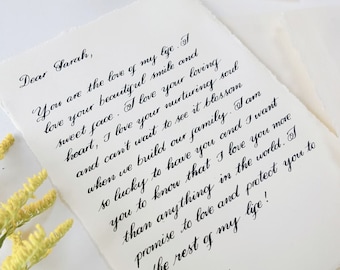 Dear Sarah,
You are the love of my life. I
love your beautyful smile and
sweet face. I love your loving
heart, I love your nurturing soul
and can't wait to see it blossom
when we build our family. I am
so lucky to have you and I want
you to know that I love you more
than anything in the world. I
promise to love and protect you to
the rest of my life!